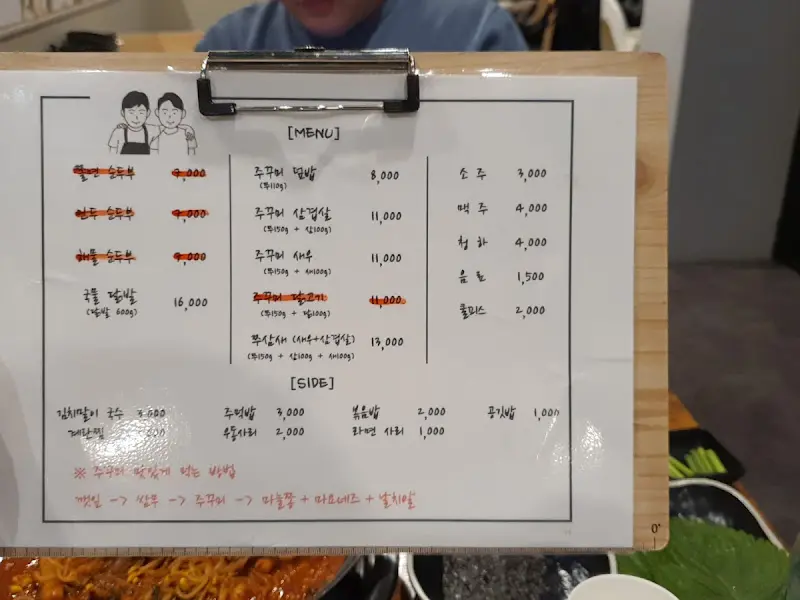 [MENU]
쫄면 순두부 7,000
만두 순두부 7,000
해물 순두부 7,000
국물 닭발 16,000
(닭발 600g)
주꾸미 덮밥 8,000
(쭈110g)
주꾸미 삼겹살 11,000
(쭈150g + 삼100g)
주꾸미 새우 11,000
(쭈150g + 새100g)
주꾸미 닭고기 11,000
(쭈150g + 닭100g)
쭈삼새 (새우+삼겹살) 13,000
(쭈150g + 삼100g + 새100g)
소주 3,000
맥주 4,000
청하 4,000
음료 1,500
쿨피스 2,000
[SIDE]
김치말이 국수 3,000 주먹밥 3,000 볶음밥 2,000 공깃밥 1,000
계란찜 우동사리 2,000 라면 사리 1,000
※ 주꾸미 맛있게 먹는 방법
깻잎 -> 쌈무 -> 주꾸미 -> 마늘쫑 + 마요네즈 + 날치알
0"